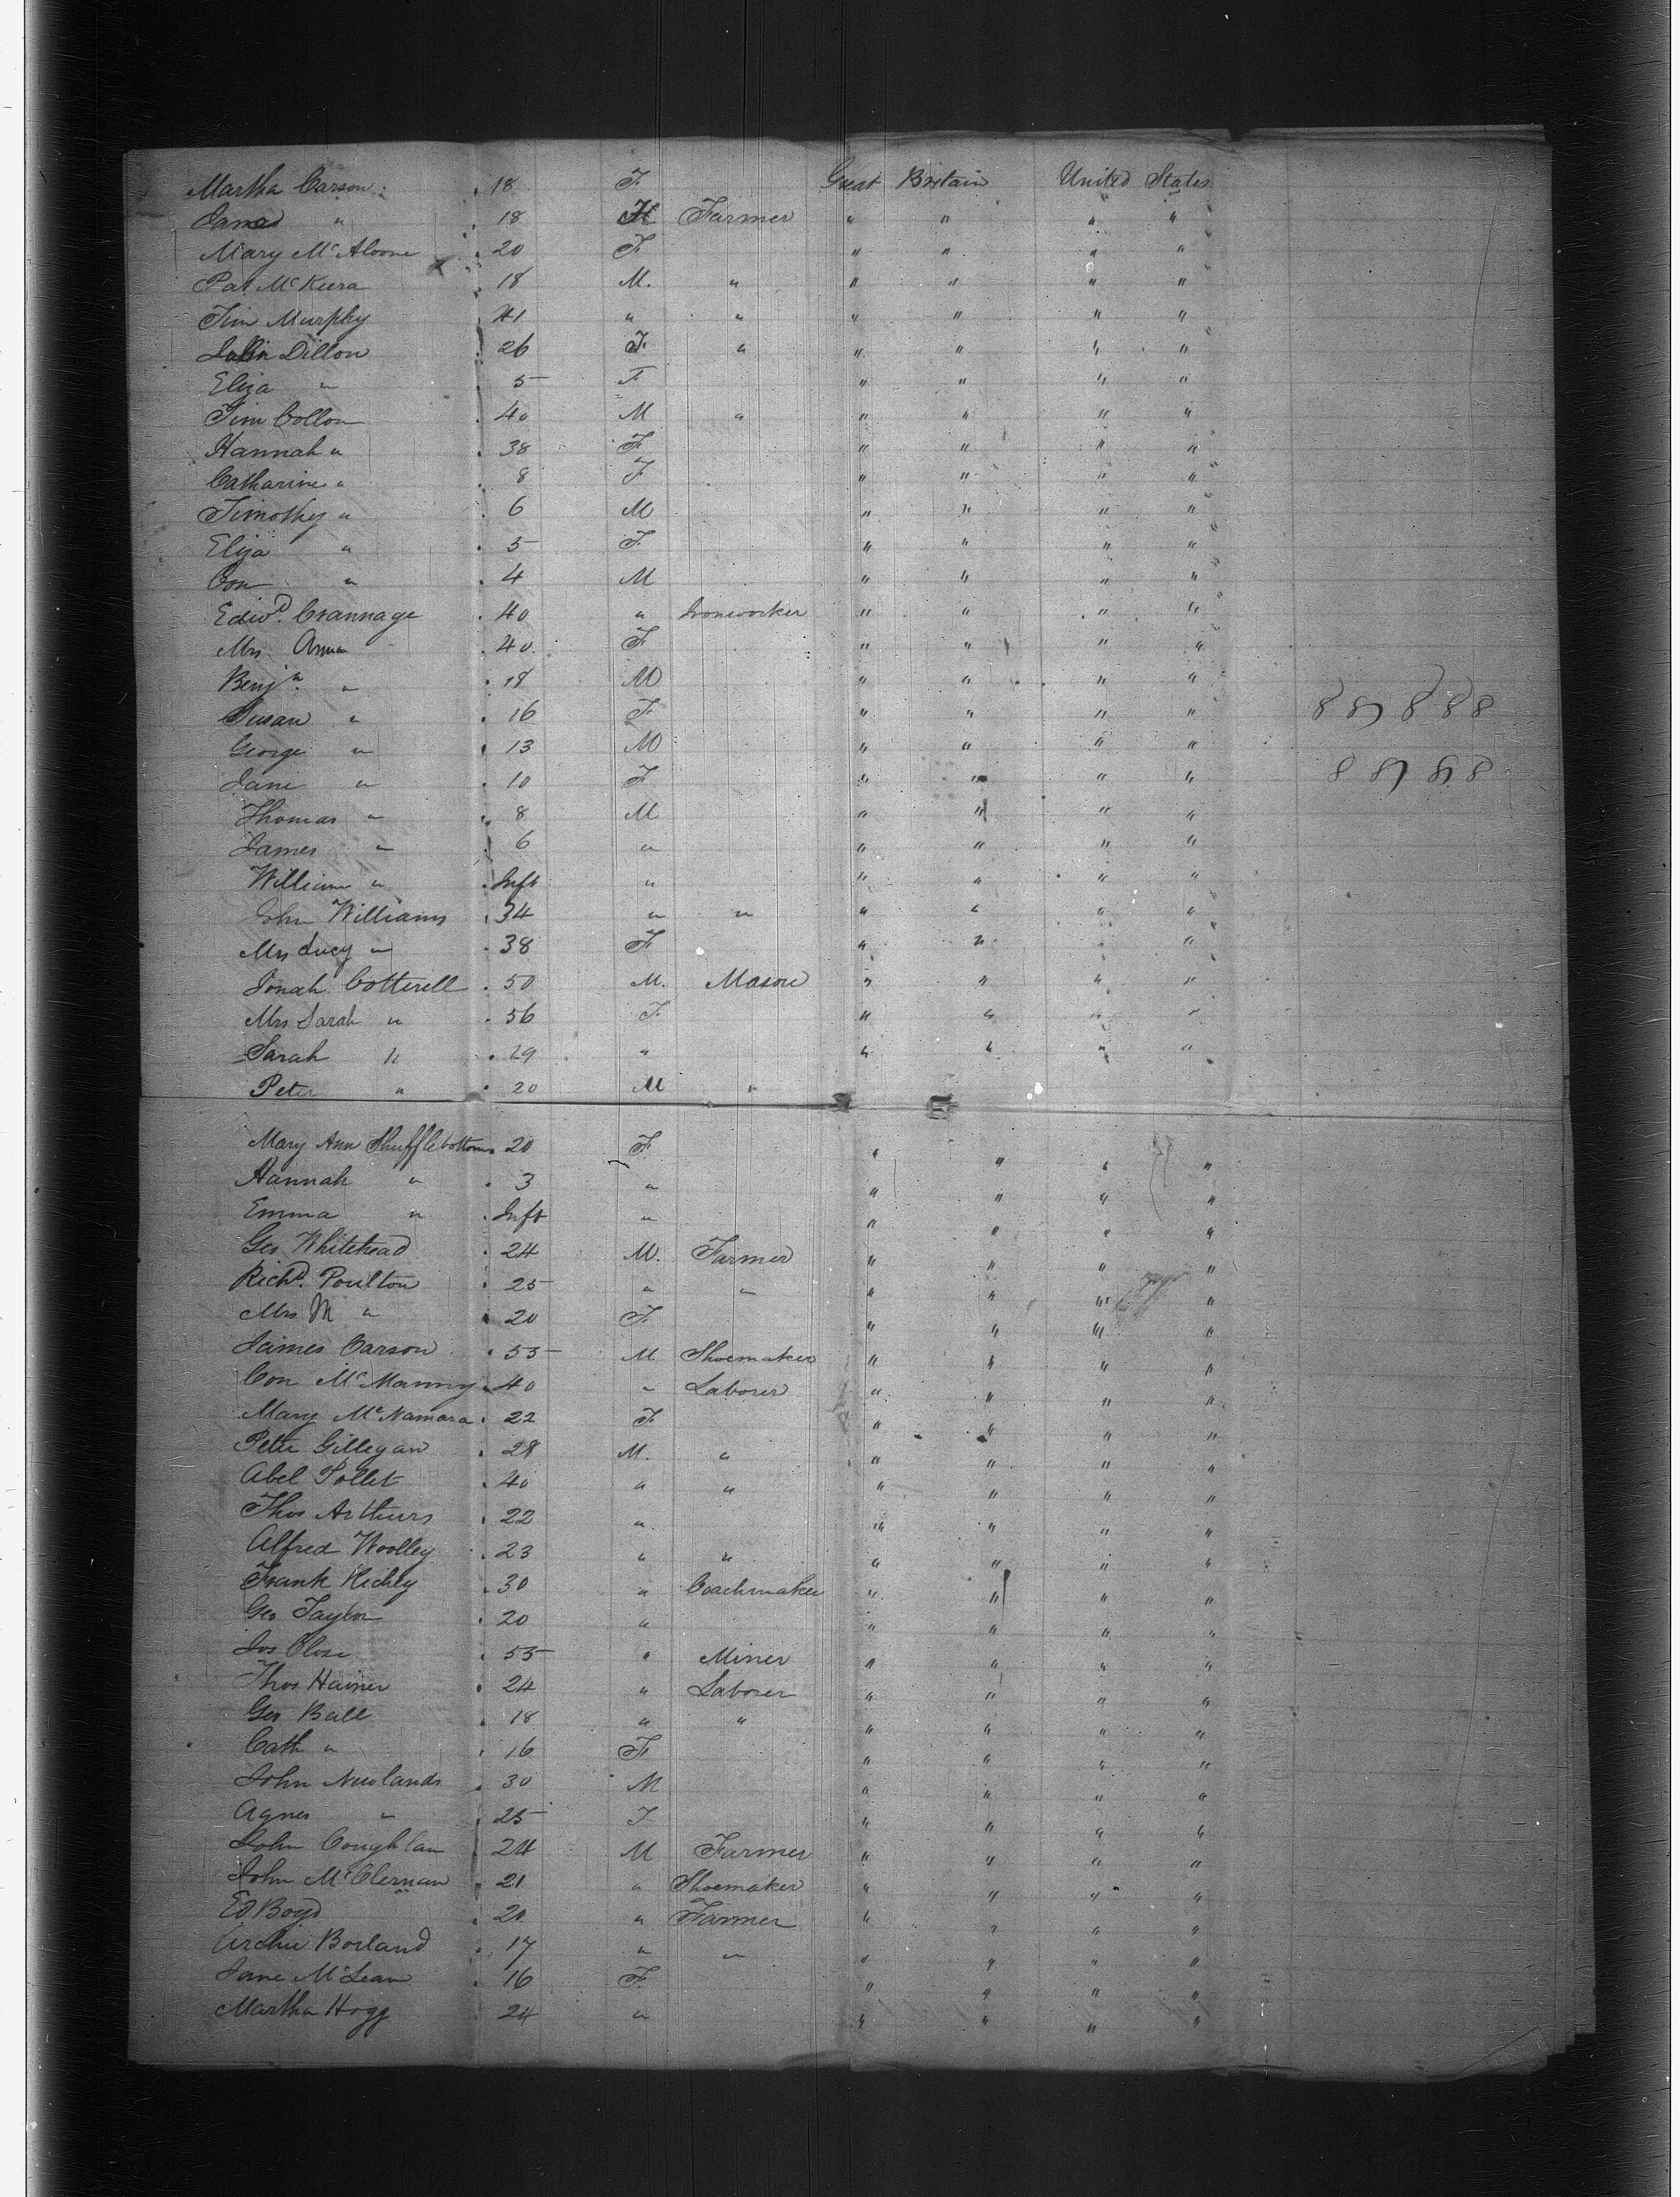 Martha Carson 18 F Great Britain United States
James " 18 M Farmer " " " "
Mary McAloone 20 F " " " "
Pat McKeera 18 M. " " " " "
Tim Murphy 41 " " " " " "
John Dillon 26 F " " " " "
Eliza " 5 F " " " "
Tim Collon 40 M " " " " "
Hannah " 38 F " " " "
Catharine " 8 F " " " "
Timothy " 6 M " " " "
Eliza " 5 F " " " "
Con " 4 M " " " "
Edwd. Crannage 40 " Ironworker " " " "
Mrs. Anna 40 F " " " "
Benjn. " 18 M " " " "
Susan " 16 F " " " "
George " 13 M " " " "
Jane " 10 F " " " "
Thomas " 8 M " " " "
James " 6 " " " " "
William " Inft " " " " "
John Williams 34 " " " " " "
Mrs Lucy " 38 F " " " "
Jonah Cotterell 50 M. Mason " " " "
Mrs Sarah " 56 F " " " "
Sarah " 19 " " " " "
Peter " 20 M "
Mary Ann Shufflebottom 20 F " " " "
Hannah " 3 " " " " "
Emma " Inft " " " " "
Geo Whitehead 24 M. Farmer " " " "
Richd. Poulton 25 " " " " " "
Mrs M " 20 F " " " "
James Carson 55 M Shoemaker " " " "
Con McManny 40 " Laborer " " " "
Mary McNamara 22 F " " " "
Peter Gillegan 28 M. " " " " "
Abel Pollet 40 " " " " " "
Thos Arthurs 22 " " " " "
Alfred Woolley 23 " " " " " "
Frank Hichey 30 " Coachmaker " " " "
Geo Taylor 20 " " " " "
Jos Close 55 " Miner " " " "
Thos Hainer 24 " Laborer " " " "
Geo Ball 18 " " " " " "
Cath " 16 F " " " "
John Newlands 30 M " " " "
Agnes " 25 F " " " "
John Coughlan 24 M Farmer " " " "
John McClernan 21 " Shoemaker " " " "
Ed Boyd 20 " Farmer " " " "
Archie Borland 17 " " " " " "
Jane McLean 16 F. " " " "
Martha Hogg 24 " " " " "